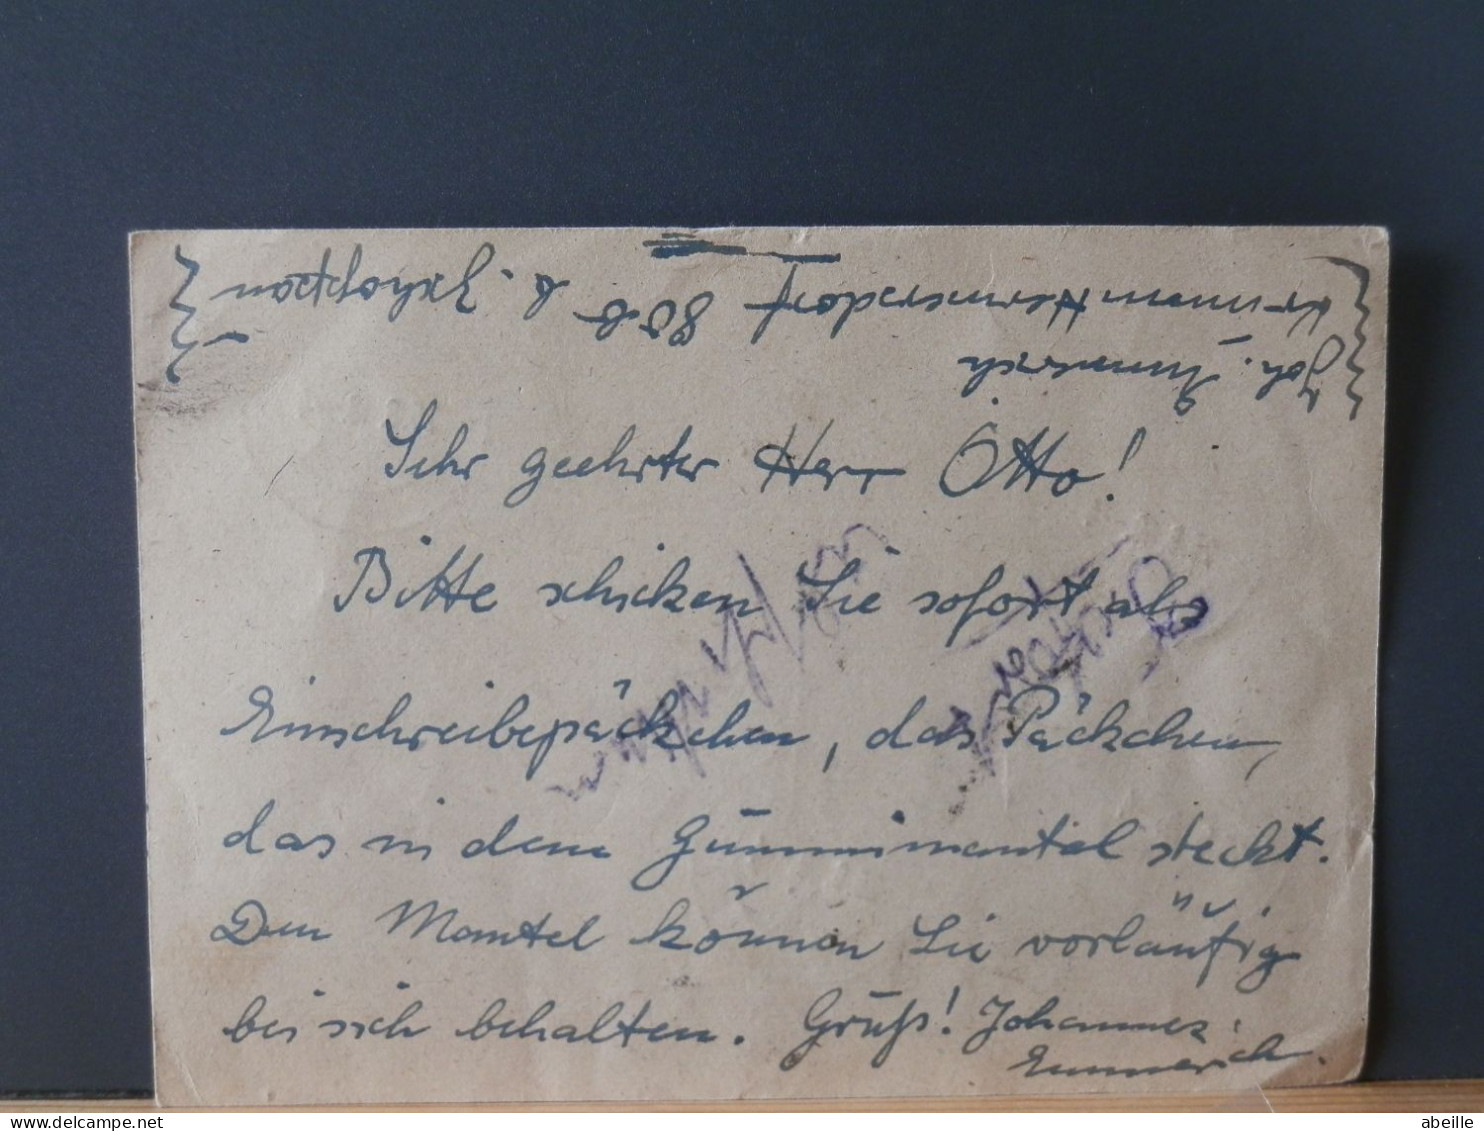 Joh. Emmerich
Krummhermersdorf 80 b b. Zschopau
Sehr geehrter Herr Otto!
Bitte schicken Sie sofort als
Einschreibepäckchen, das Päckchen,
das in dem Gummimantel steckt.
Den Mantel können Sie vorläufig
bei sich behalten. Gruß! Johannes
Emmerich.
abeille